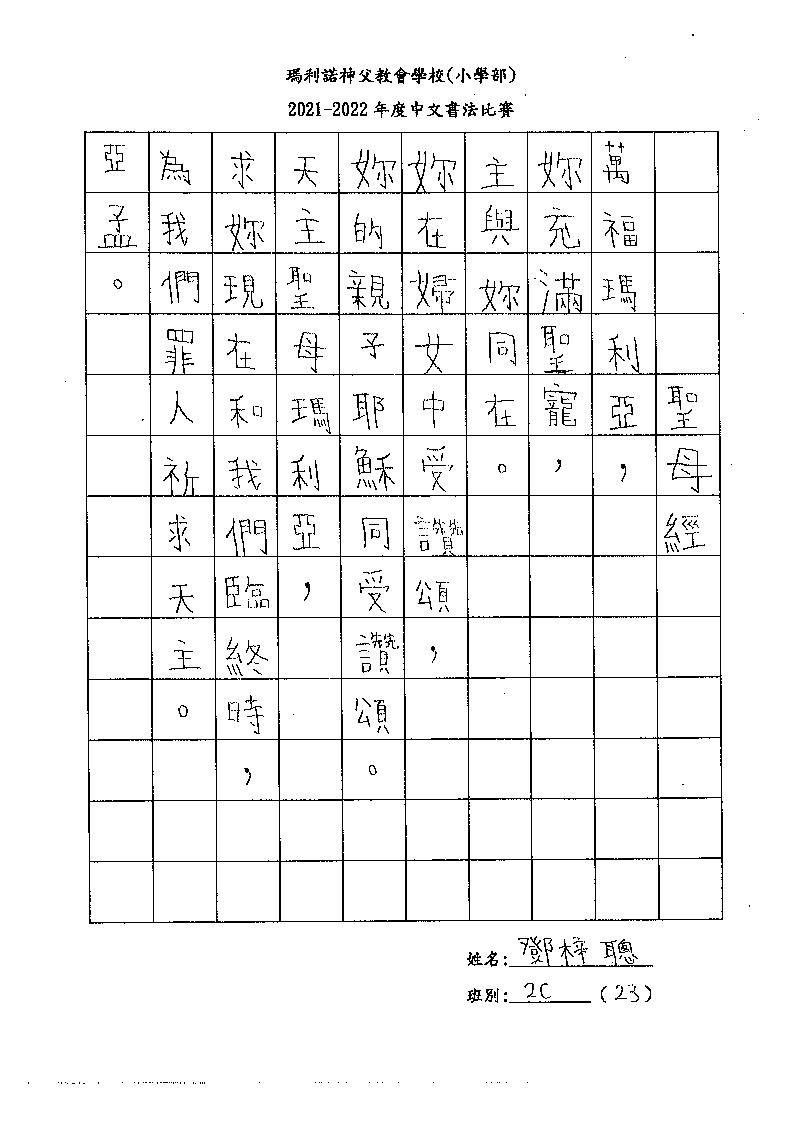 瑪利諾神父教會學校(小學部)
2021-2022年度中文書法比賽
聖母經
萬福瑪利亞，
妳充滿聖寵，
主與妳同在。
妳在婦女中受讚頌，
妳的親子耶穌同受讚頌。
天主聖母瑪利亞，
求妳現在和我們臨終時，
為我們罪人祈求天主。
亞孟。
姓名:鄧梓聰
班別:2C (23)